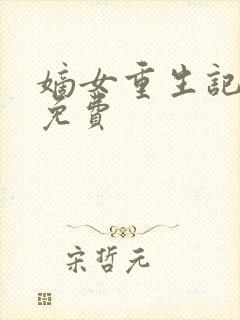 嫡女重生記
免費
宋哲元